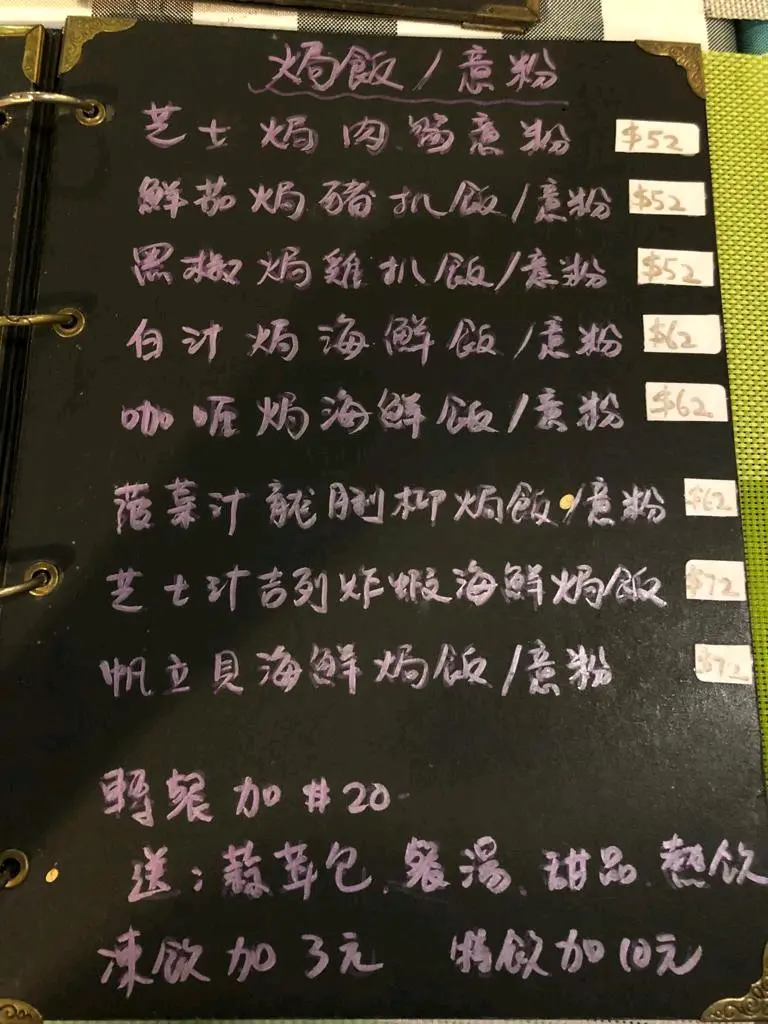 焗飯/意粉
芝士焗肉醬意粉 $52
鮮茄焗豬扒飯/意粉 $52
黑椒焗雞扒飯/意粉 $52
白汁焗海鮮飯/意粉 $62
咖喱焗海鮮飯/意粉 $62
菠菜汁龍脷柳焗飯/意粉 $62
芝士汁吉列炸蝦海鮮焗飯 $72
帆立貝海鮮焗飯/意粉 $72
轉餐加#20
送:蒜茸包、餐湯、甜品、熱飲
凍飲加3元 特飲加10元